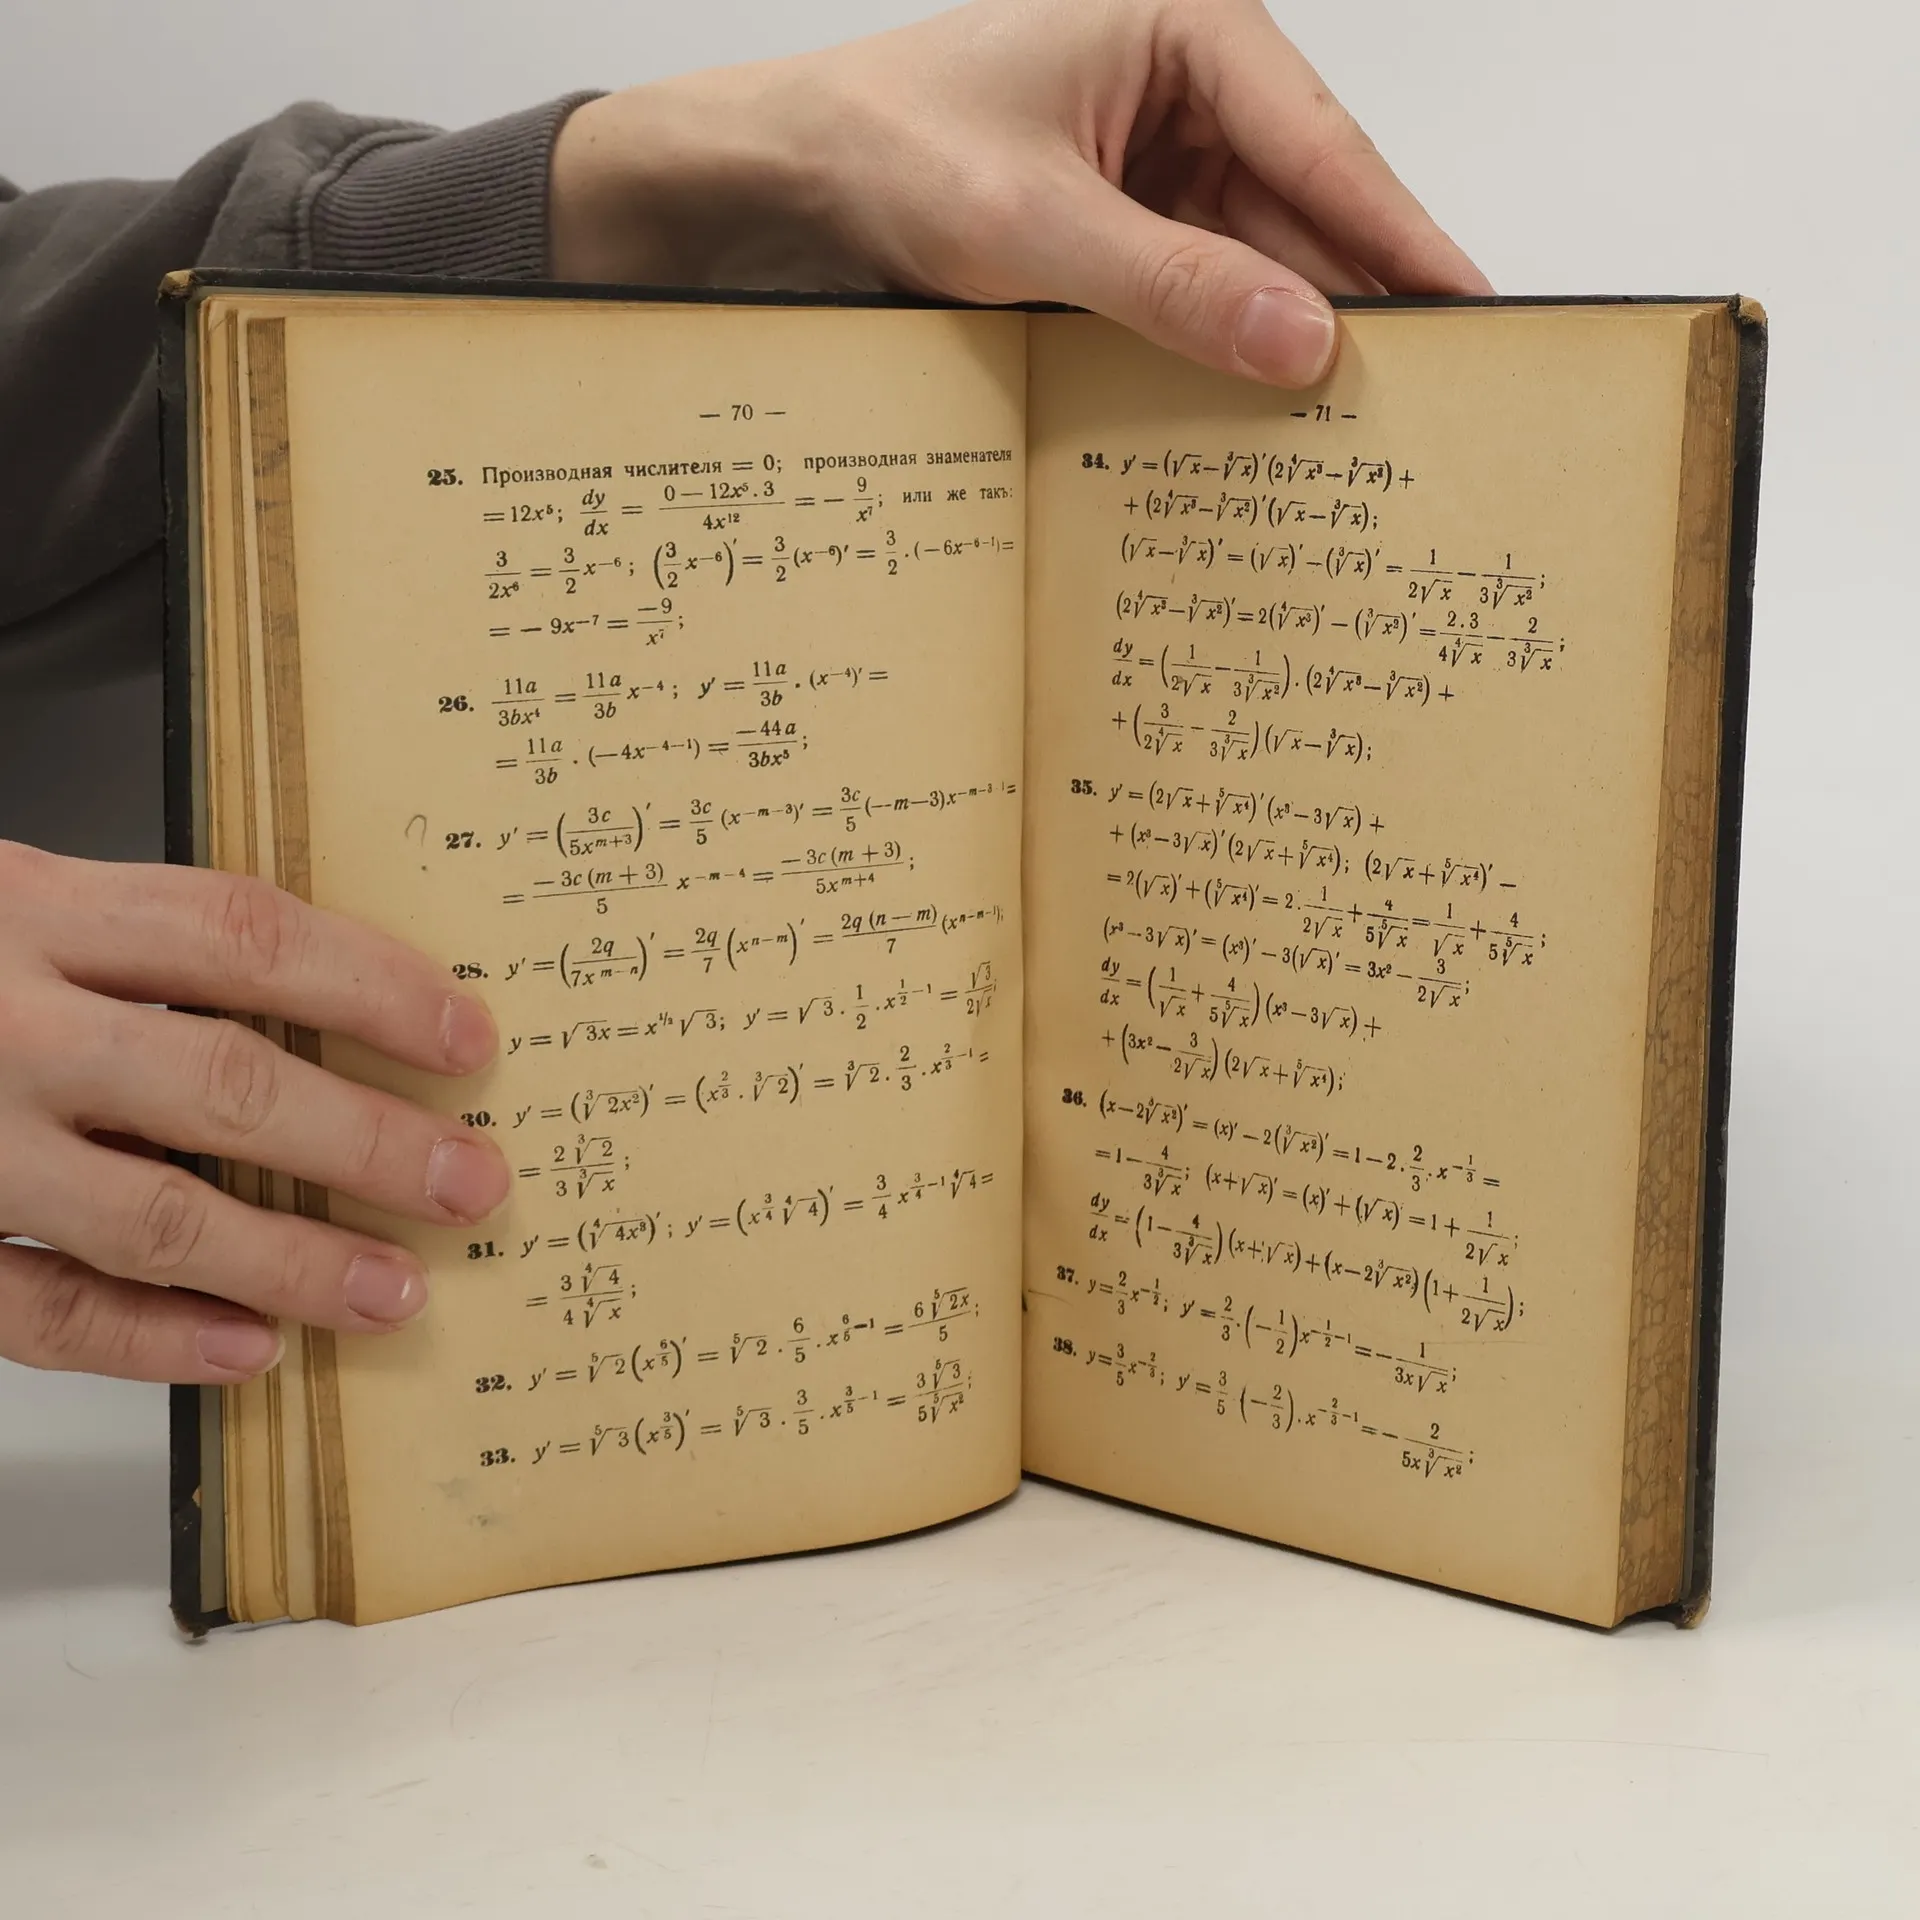 — 70 —
25. Производная числителя = 0; производная знаменателя
= 12x⁵; dy/dx = (0 — 12x⁵ . 3)/(4x¹²) = — 9/x⁷; или же такъ:
3/(2x⁶) = 3/2 x⁻⁶; (3/2 x⁻⁶)′ = 3/2 (x⁻⁶)′ = 3/2 . (— 6x⁻⁶⁻¹) =
= — 9x⁻⁷ = —9/x⁷;
26. 11a/(3bx⁴) = 11a/(3b) x⁻⁴; y′ = 11a/(3b) . (x⁻⁴)′ =
= 11a/(3b) . (—4x⁻⁴⁻¹) = —44a/(3bx⁵);
?
27. y′ = (3c/(5x^(m+3)))′ = 3c/5 (x^(—m—3))′ = 3c/5 (—m—3)x^(—m—3—1) =
= —3c(m + 3)/5 x^(—m—4) = —3c(m + 3)/(5x^(m+4));
28. y′ = (2q/(7x^(m—n)))′ = 2q/7 (x^(n—m))′ = 2q(n — m)/7 (x^(n—m—1));
y = √(3x) = x^(1/2) √3; y′ = √3 . 1/2 . x^(1/2 —1) = √3/(2√x);
30. y′ = (∛(2x²))′ = (x^(2/3) . ∛2)′ = ∛2 . 2/3 . x^(2/3 —1) =
= 2∛2/(3∛x);
31. y′ = (∜(4x³))′; y′ = (x^(3/4) ∜4)′ = 3/4 x^(3/4 —1) ∜4 =
= 3∜4/(4∜x);
32. y′ = ⁵√2 (x^(6/5))′ = ⁵√2 . 6/5 . x^(6/5 —1) = 6 ⁵√(2x)/5;
33. y′ = ⁵√3 (x^(3/5))′ = ⁵√3 . 3/5 . x^(3/5 —1) = 3 ⁵√3/(5 ⁵√(x²));
— 71 —
34. y′ = (√x — ∛x)′ (2∜(x³) — ∛(x²)) +
+ (2∜(x³) — ∛(x²))′ (√x — ∛x);
(√x — ∛x)′ = (√x)′ — (∛x)′ = 1/(2√x) — 1/(3∛(x²));
(2∜(x³) — ∛(x²))′ = 2(∜(x³))′ — (∛(x²))′ = 2.3/(4∜x) — 2/(3∛x);
dy/dx = (1/(2√x) — 1/(3∛(x²))) . (2∜(x³) — ∛(x²)) +
+ (3/(2∜x) — 2/(3∛x)) (√x — ∛x);
35. y′ = (2√x + ⁵√(x⁴))′ (x³ — 3√x) +
+ (x³ — 3√x)′ (2√x + ⁵√(x⁴)); (2√x + ⁵√(x⁴))′ —
= 2(√x)′ + (⁵√(x⁴))′ = 2 . 1/(2√x) + 4/(5 ⁵√x) = 1/√x + 4/(5 ⁵√x);
(x³ — 3√x)′ = (x³)′ — 3(√x)′ = 3x² — 3/(2√x);
dy/dx = (1/√x + 4/(5 ⁵√x)) (x³ — 3√x) +
+ (3x² — 3/(2√x)) (2√x + ⁵√(x⁴));
36. (x — 2∛(x²))′ = (x)′ — 2(∛(x²))′ = 1 — 2 . 2/3 . x^(—1/3) =
= 1 — 4/(3∛x); (x + √x)′ = (x)′ + (√x)′ = 1 + 1/(2√x);
dy/dx = (1 — 4/(3∛x)) (x + √x) + (x — 2∛(x²)) (1 + 1/(2√x));
37. y = 2/3 x^(—1/2); y′ = 2/3 . (—1/2) x^(—1/2 —1) = — 1/(3x√x);
38. y = 3/5 x^(—2/3); y′ = 3/5 . (—2/3) . x^(—2/3 —1) = — 2/(5x∛(x²));